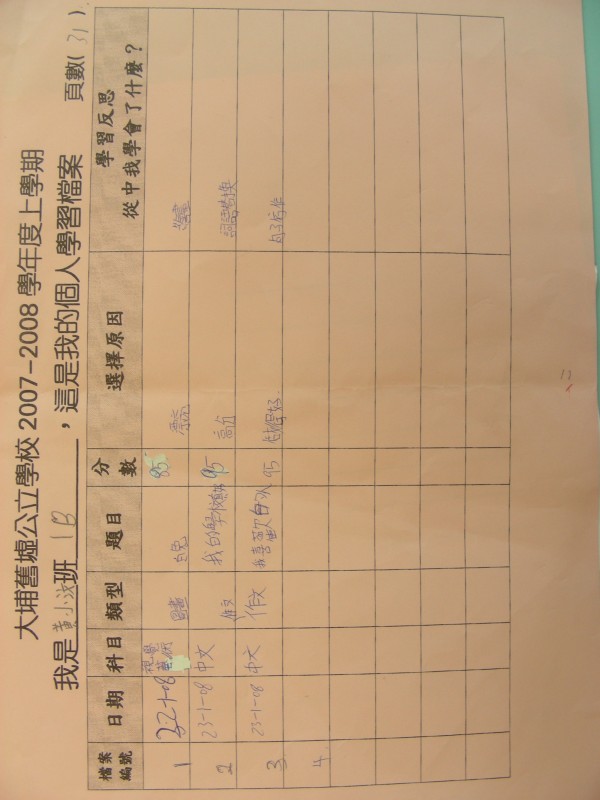 大埔舊墟公立學校 2007-2008 學年度上學期
我是黃小 班 1B ，這是我的個人學習檔案 頁數( 31 )
檔案編號 日期 科目 類型 題目 分數 選擇原因 學習反思 從中我學會了什麼？
1 22-1-08 視覺藝術 圖畫 白兔 85
2 23-1-08 中文 作文 我的學校 95 高分
3 23-1-08 中文 作文 我喜歡的 95
4